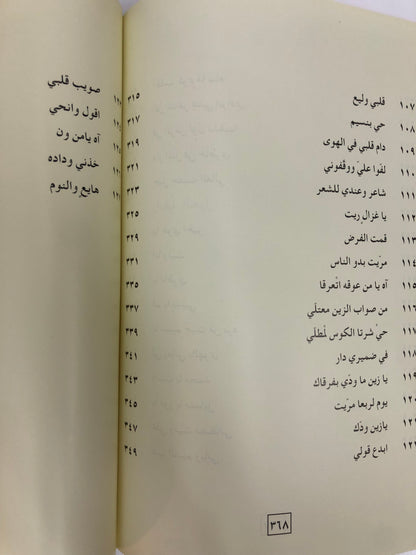 ١٠٧ قلبي وليع ٣١٥
١٠٨ حي بنسيم ٣١٧
١٠٩ دام قلبي في الهوى ٣١٩
١١٠ لفوا عليّ ووقفوني ٣٢١
١١١ شاعر وعندي للشعر ٣٢٣
١١٢ يا غزال ريت ٣٢٥
١١٣ قمت الفرض ٣٢٩
١١٤ مريت بدو الناس ٣٣١
١١٥ آه يا من عوقه اتعرقا ٣٣٥
١١٦ من صواب الزين معتلّي ٣٣٧
١١٧ حيّ شرتا الكوس لمطلّي ٣٣٩
١١٨ في ضميري دار ٣٤١
١١٩ يا زين ما ودّي بفرقاك ٣٤٣
١٢٠ يوم لربعا مرّيت ٣٤٥
يازين ودك ٣٤٧
ابدع قولي ٣٤٩
٣٦٨
صويب قلبي
اقول وانحي
آه يامن ون
خذني وداده
هايع والنوم